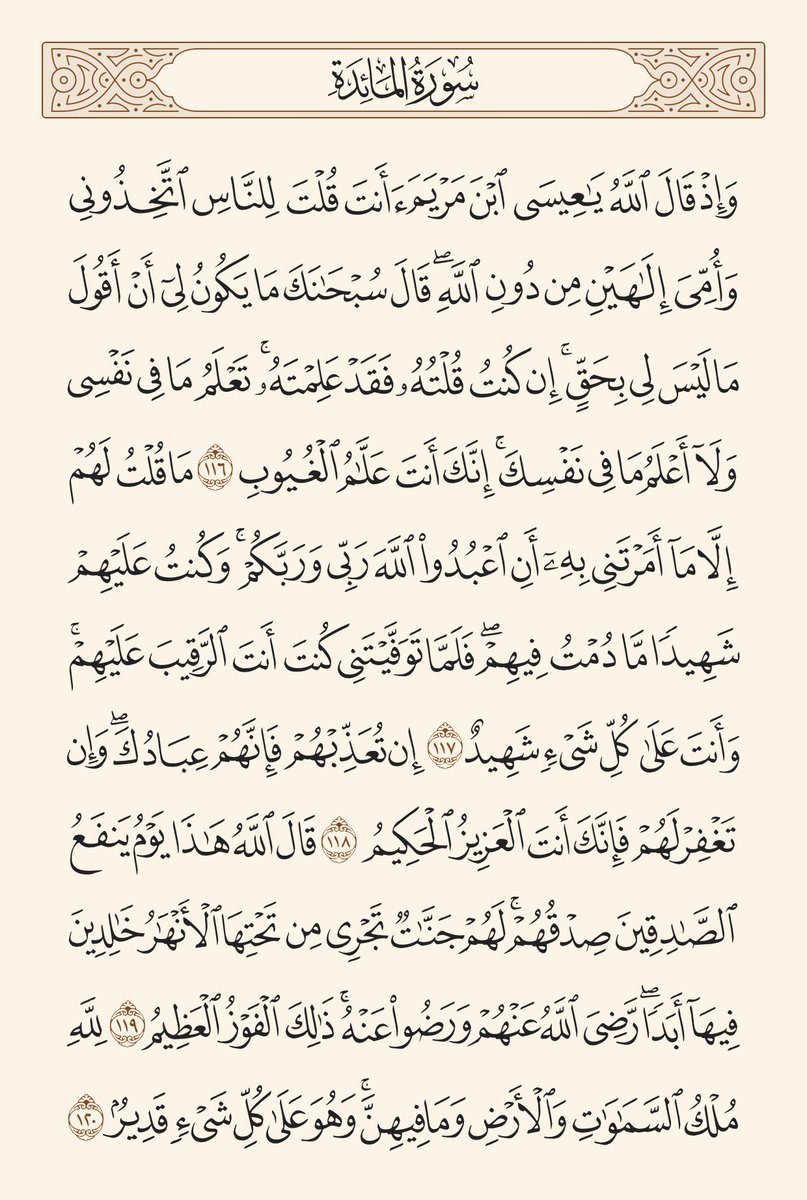 سُورَةُ المَائِدَةِ
وَإِذۡ قَالَ ٱللَّهُ يَٰعِيسَى ٱبۡنَ مَرۡيَمَ ءَأَنتَ قُلۡتَ لِلنَّاسِ ٱتَّخِذُونِي
وَأُمِّيَ إِلَٰهَيۡنِ مِن دُونِ ٱللَّهِۖ قَالَ سُبۡحَٰنَكَ مَا يَكُونُ لِيٓ أَنۡ أَقُولَ
مَا لَيۡسَ لِي بِحَقٍّۚ إِن كُنتُ قُلۡتُهُۥ فَقَدۡ عَلِمۡتَهُۥۚ تَعۡلَمُ مَا فِي نَفۡسِي
وَلَآ أَعۡلَمُ مَا فِي نَفۡسِكَۚ إِنَّكَ أَنتَ عَلَّٰمُ ٱلۡغُيُوبِ ١١٦ مَا قُلۡتُ لَهُمۡ
إِلَّا مَآ أَمَرۡتَنِي بِهِۦٓ أَنِ ٱعۡبُدُواْ ٱللَّهَ رَبِّي وَرَبَّكُمۡۚ وَكُنتُ عَلَيۡهِمۡ
شَهِيدٗا مَّا دُمۡتُ فِيهِمۡۖ فَلَمَّا تَوَفَّيۡتَنِي كُنتَ أَنتَ ٱلرَّقِيبَ عَلَيۡهِمۡۚ
وَأَنتَ عَلَىٰ كُلِّ شَيۡءٖ شَهِيدٌ ١١٧ إِن تُعَذِّبۡهُمۡ فَإِنَّهُمۡ عِبَادُكَۖ وَإِن
تَغۡفِرۡ لَهُمۡ فَإِنَّكَ أَنتَ ٱلۡعَزِيزُ ٱلۡحَكِيمُ ١١٨ قَالَ ٱللَّهُ هَٰذَا يَوۡمُ يَنفَعُ
ٱلصَّٰدِقِينَ صِدۡقُهُمۡۚ لَهُمۡ جَنَّٰتٞ تَجۡرِي مِن تَحۡتِهَا ٱلۡأَنۡهَٰرُ خَٰلِدِينَ
فِيهَآ أَبَدٗاۖ رَّضِيَ ٱللَّهُ عَنۡهُمۡ وَرَضُواْ عَنۡهُۚ ذَٰلِكَ ٱلۡفَوۡزُ ٱلۡعَظِيمُ ١١٩ لِلَّهِ
مُلۡكُ ٱلسَّمَٰوَٰتِ وَٱلۡأَرۡضِ وَمَا فِيهِنَّۚ وَهُوَ عَلَىٰ كُلِّ شَيۡءٖ قَدِيرُۢ ١٢٠